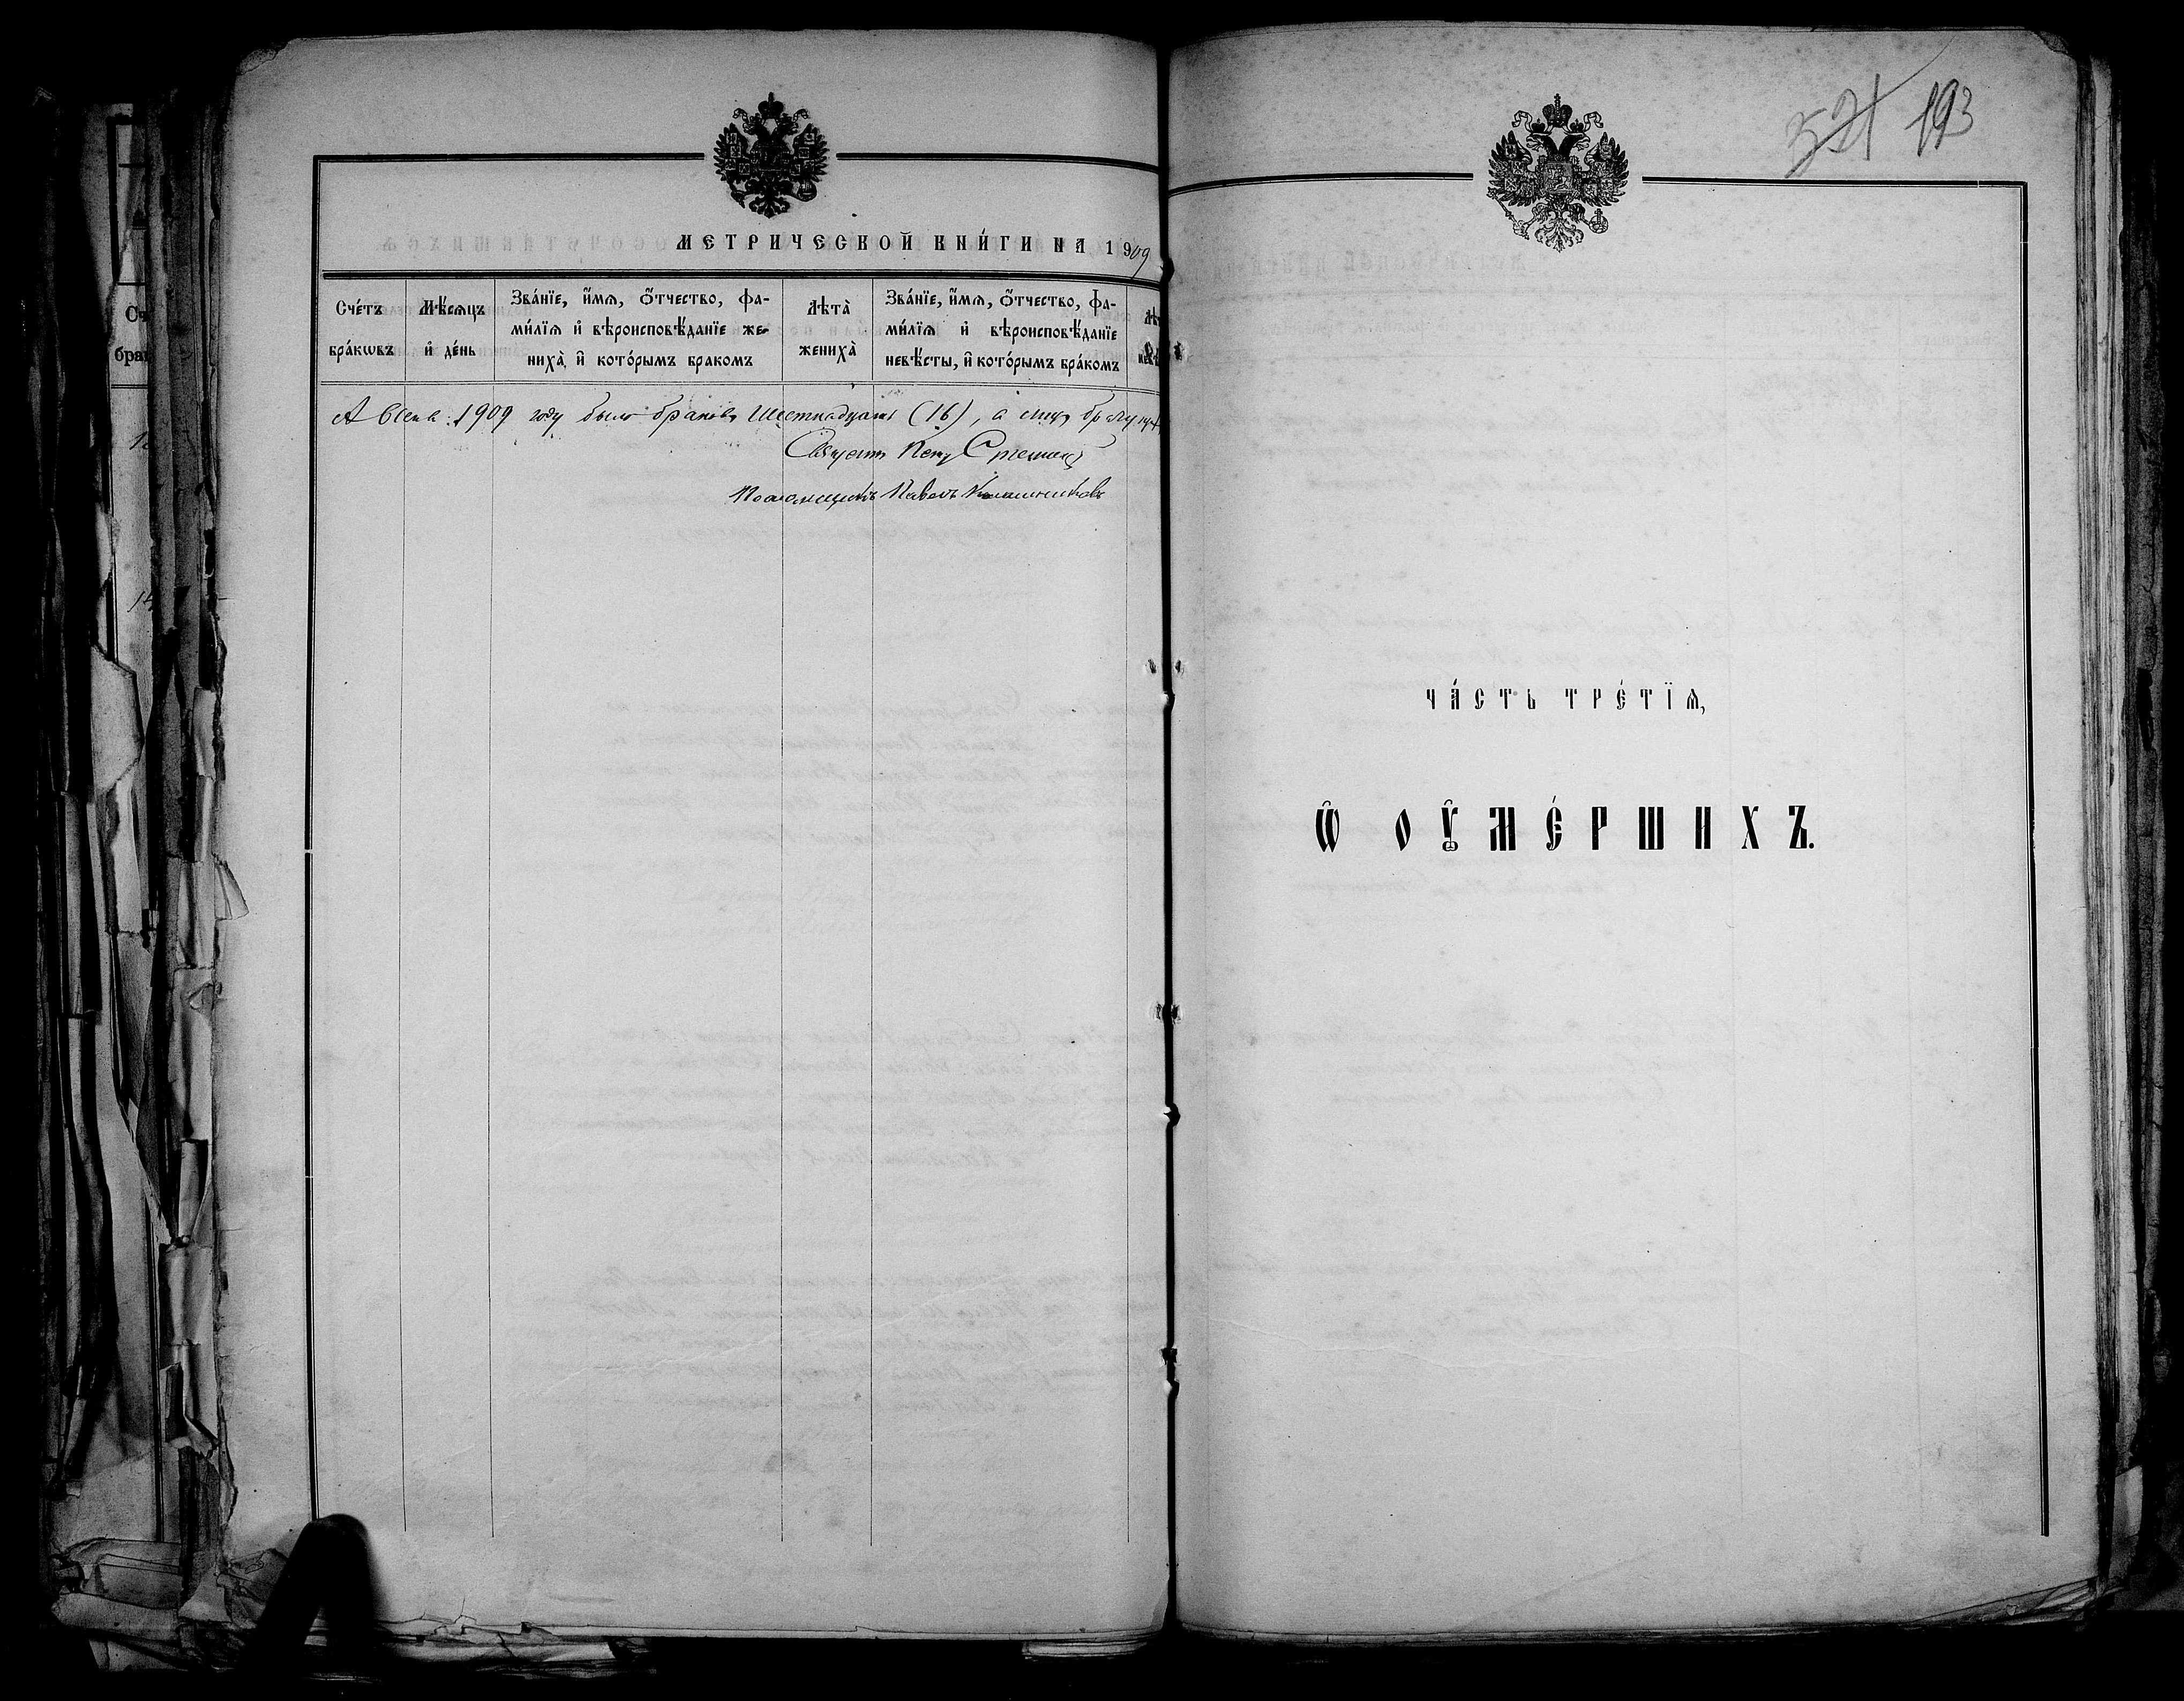 521 193
МЕТРИЧЕСКОЙ КНИ́ГИ НА 1909
Сче́тъ бра́кѡвъ
Мѣ́сѧцъ и҆ де́нь
Зва́нїе, и҆́мѧ, ѻ҆́тчество, фа-
ми́лїѧ и҆ вѣроисповѣ́данїе же-
ниха̀, и҆ кото́рымъ бракомъ
Лѣта̀ жениха̀
Зва́нїе, и҆́мѧ, ѻ҆́тчество, фа-
ми́лїѧ и҆ вѣроисповѣ́данїе
невѣ́сты, и҆ кото́рымъ бра́комъ
А всего 1909 году было браковъ Шестнадцать (16), а
Священникъ Петр
Псаломщикъ Павелъ
ЧА́СТЬ ТРЕ́ТЇѦ,
Ѽ ОУ҆МЕ́РШИХЪ.